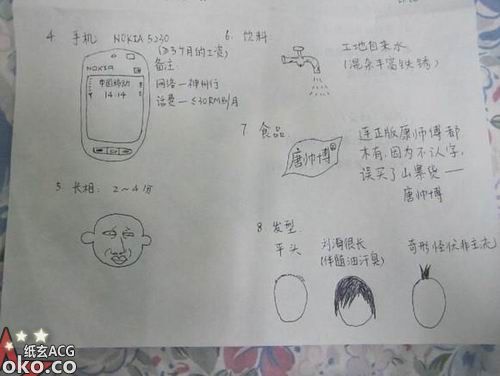 4. 手机 NOKIA 5230
(≥3个月的工资)
备注
网络—神州行
话费—≤30RMB/月
NOKIA
中国移动
14:14
5. 长相: 2~4分
6. 饮料
工地自来水
(混杂丰富铁锈)
7. 食品.
唐帅博
连正版康师傅都
木有,因为不认字,
误买了山寨货——
唐帅博
8. 发型
平头
刘海很长
(伴随油汗臭)
奇形怪状非主流
纸玄ACG
oko.co